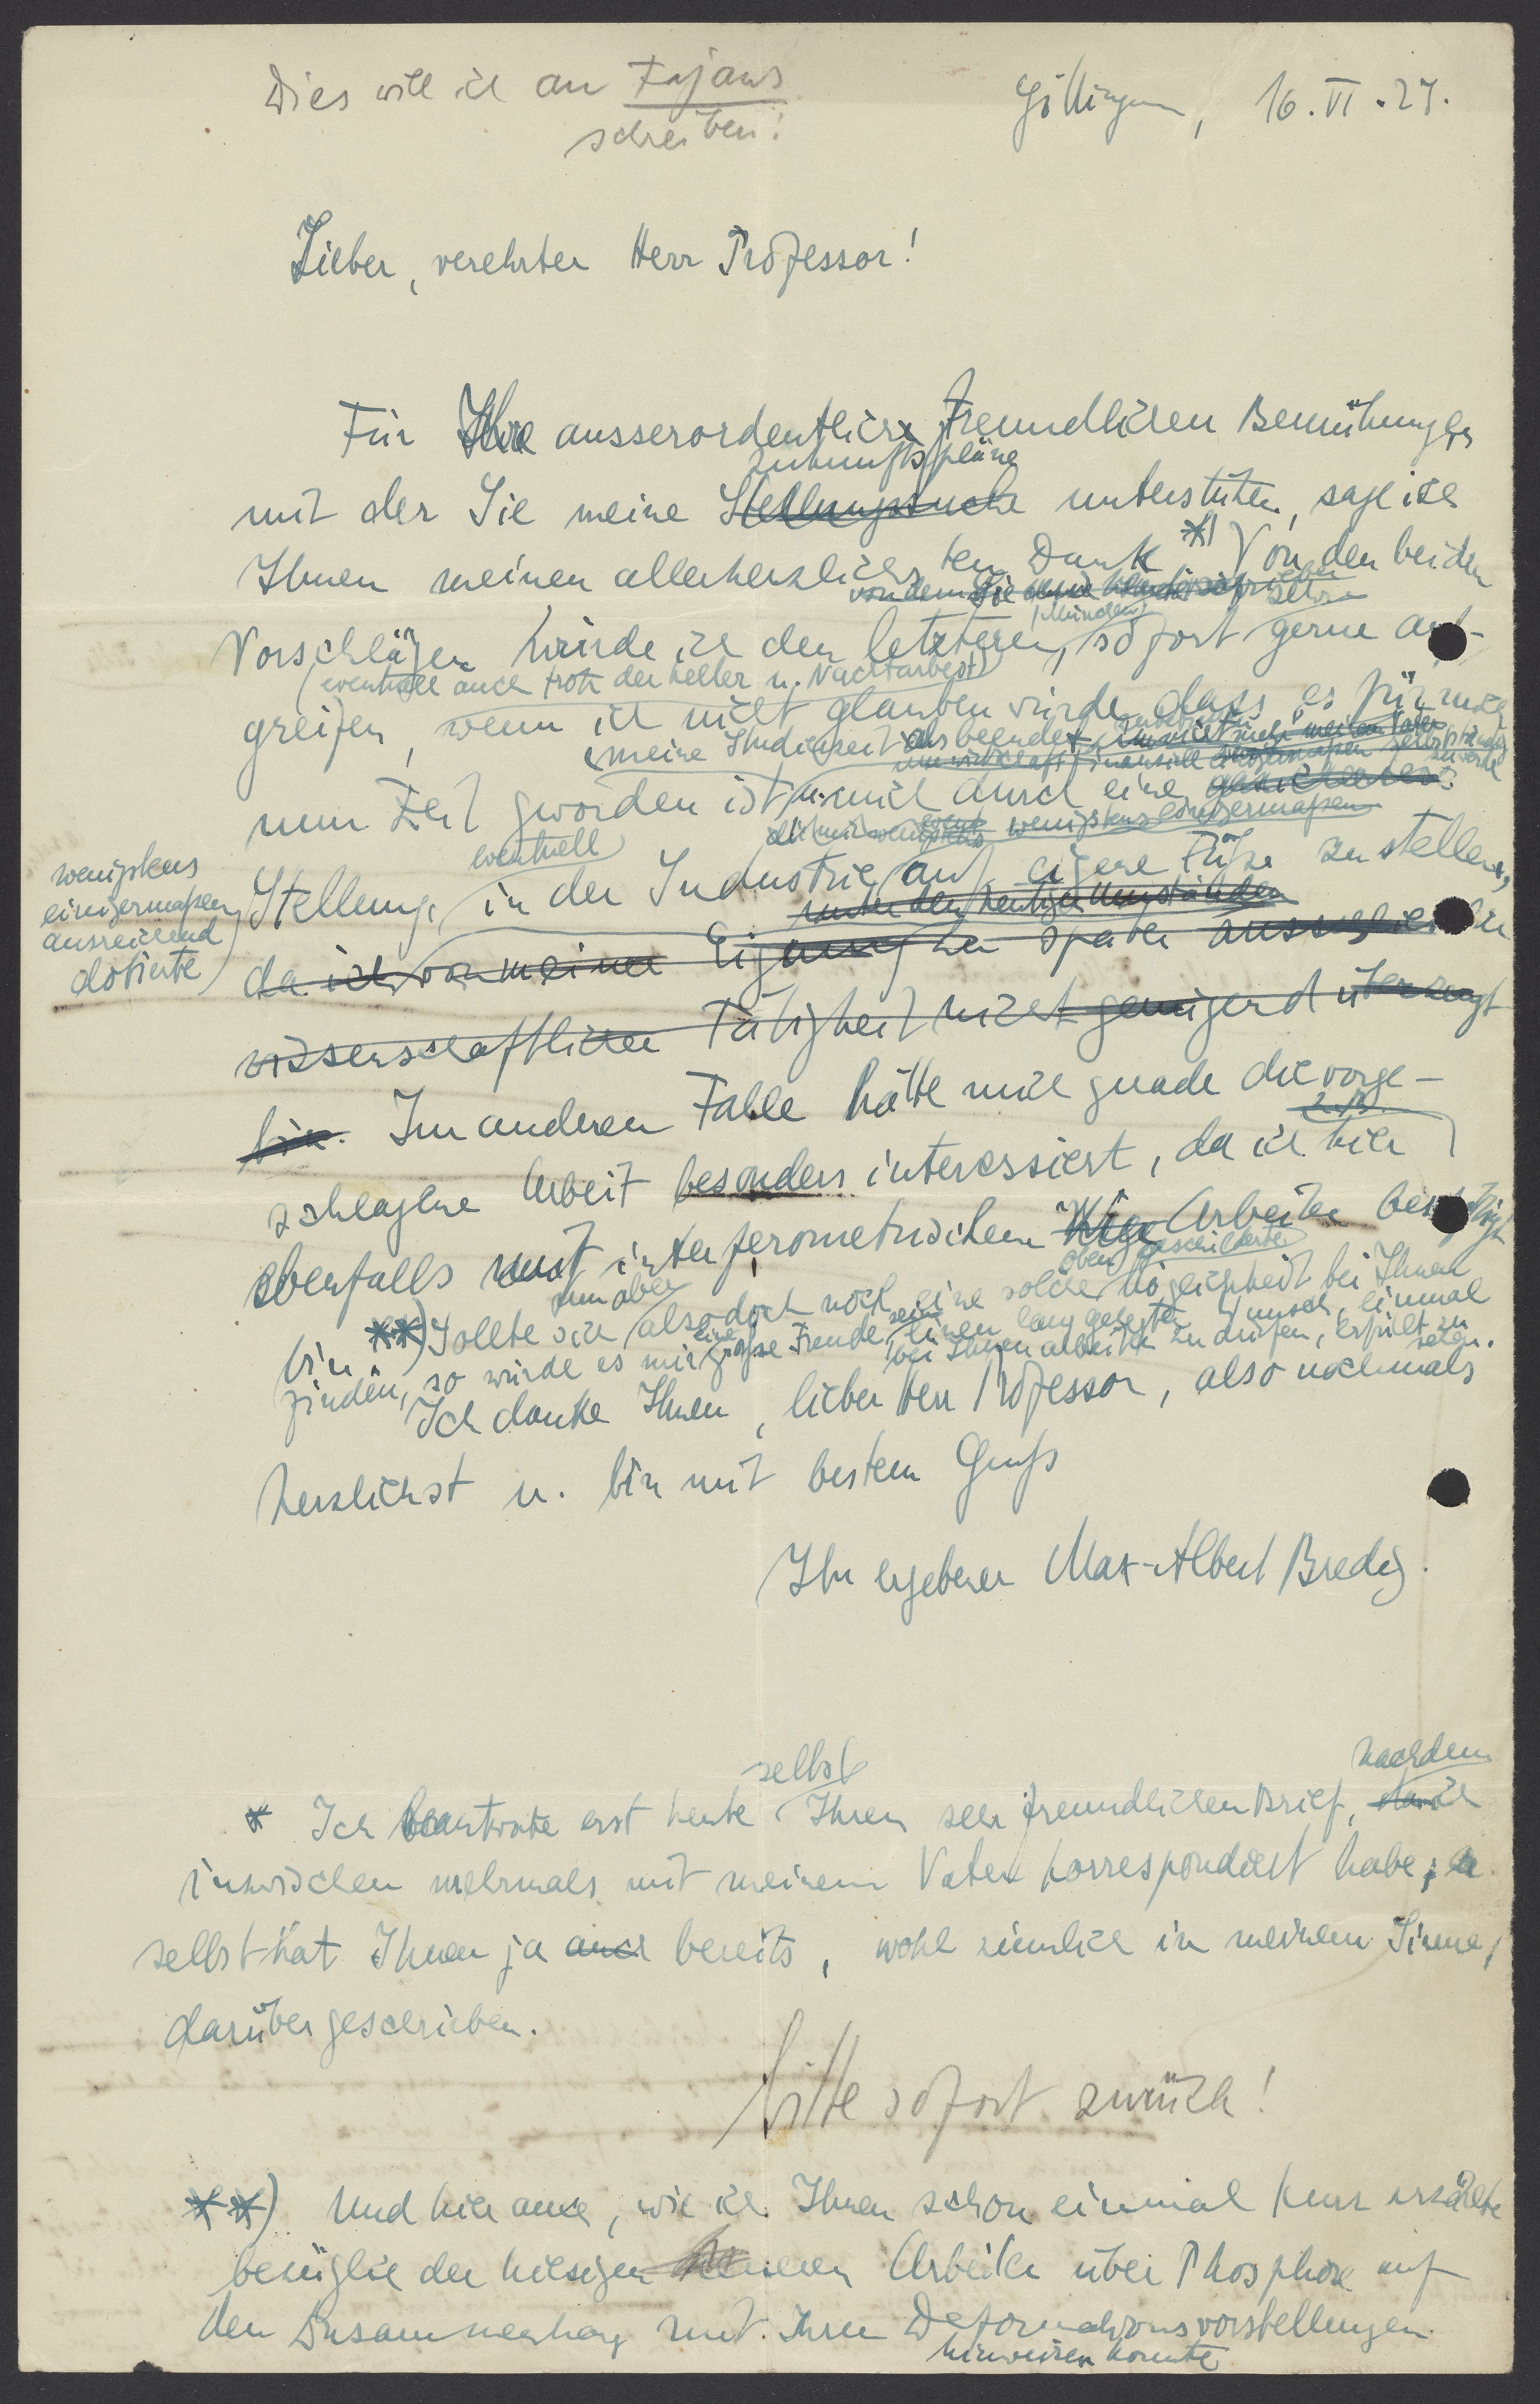 Dies will ich an Fajans
schreiben!
Göttingen, 16. VI. 27.
Lieber, verehrter Herr Professor!
Für Ihre ausserordentlich freundlichen Bemühungen
Zukunftspläne
mit der Sie meine Stellungsuche unterstützen, sage ich
Ihnen meinen allerherzlichsten Dank *) Von den beiden
von dem Sie
sehr
(München)
Vorschlägen würde ich den letzteren, sofort gerne auf-
(eventuell auch trotz der Keller u. Nachtarbeit)
greifen, wenn ich nicht glauben würde, dass es für mich
meine Studienzeit als beendet
finanziell einigermaßen selbständig
zu werde
nun Zeit geworden ist, u. mich durch eine gesicherte
wenigstens einigermaßen
wenigstens
einigermaßen
ausreichend
dotierte
eventuell
Stellung, in der Industrie auf eigene Füße zu stellen,
unter den heutigen Umständen
da ich von meiner Eignung zu später ausschliesslich
wissenschaftlicher Tätigkeit nicht genügend überzeugt
bin. Im anderen Falle hätte mich gerade die vorge-
z. B.
schlagene Arbeit besonders interessiert, da ich hier
ebenfalls mit interferometrischen Arbeiten beschäftigt
oben geschilderte
nun aber
bin. **) Sollte sich also doch noch eine solche Möglichkeit bei Ihnen
finden, so würde es mir eine große Freude sein, einen lang gehegten Wunsch, einmal
bei Ihnen arbeiten zu dürfen, erfüllt zu
sehen.
Ich danke Ihnen, lieber Herr Professor, also nochmals
herzlichst u. bin mit bestem Gruß
Ihr ergebener Max-Albert Bredig.
selbst
nachdem
* Ich beantworte erst heute Ihren sehr freundlichen Brief, da ich
inzwischen mehrmals mit meinem Vater korrespondiert habe; er
selbst hat Ihnen ja auch bereits, wohl ziemlich in meinem Sinne,
darüber geschrieben.
bitte sofort zurück!
**) Und hier auch, wie ich Ihnen schon einmal kurz erzählte
bezüglich der hiesigen neueren Arbeiten über Phosphore auf
den Zusammenhang mit Ihren Deformationsvorstellungen
hinweisen konnte